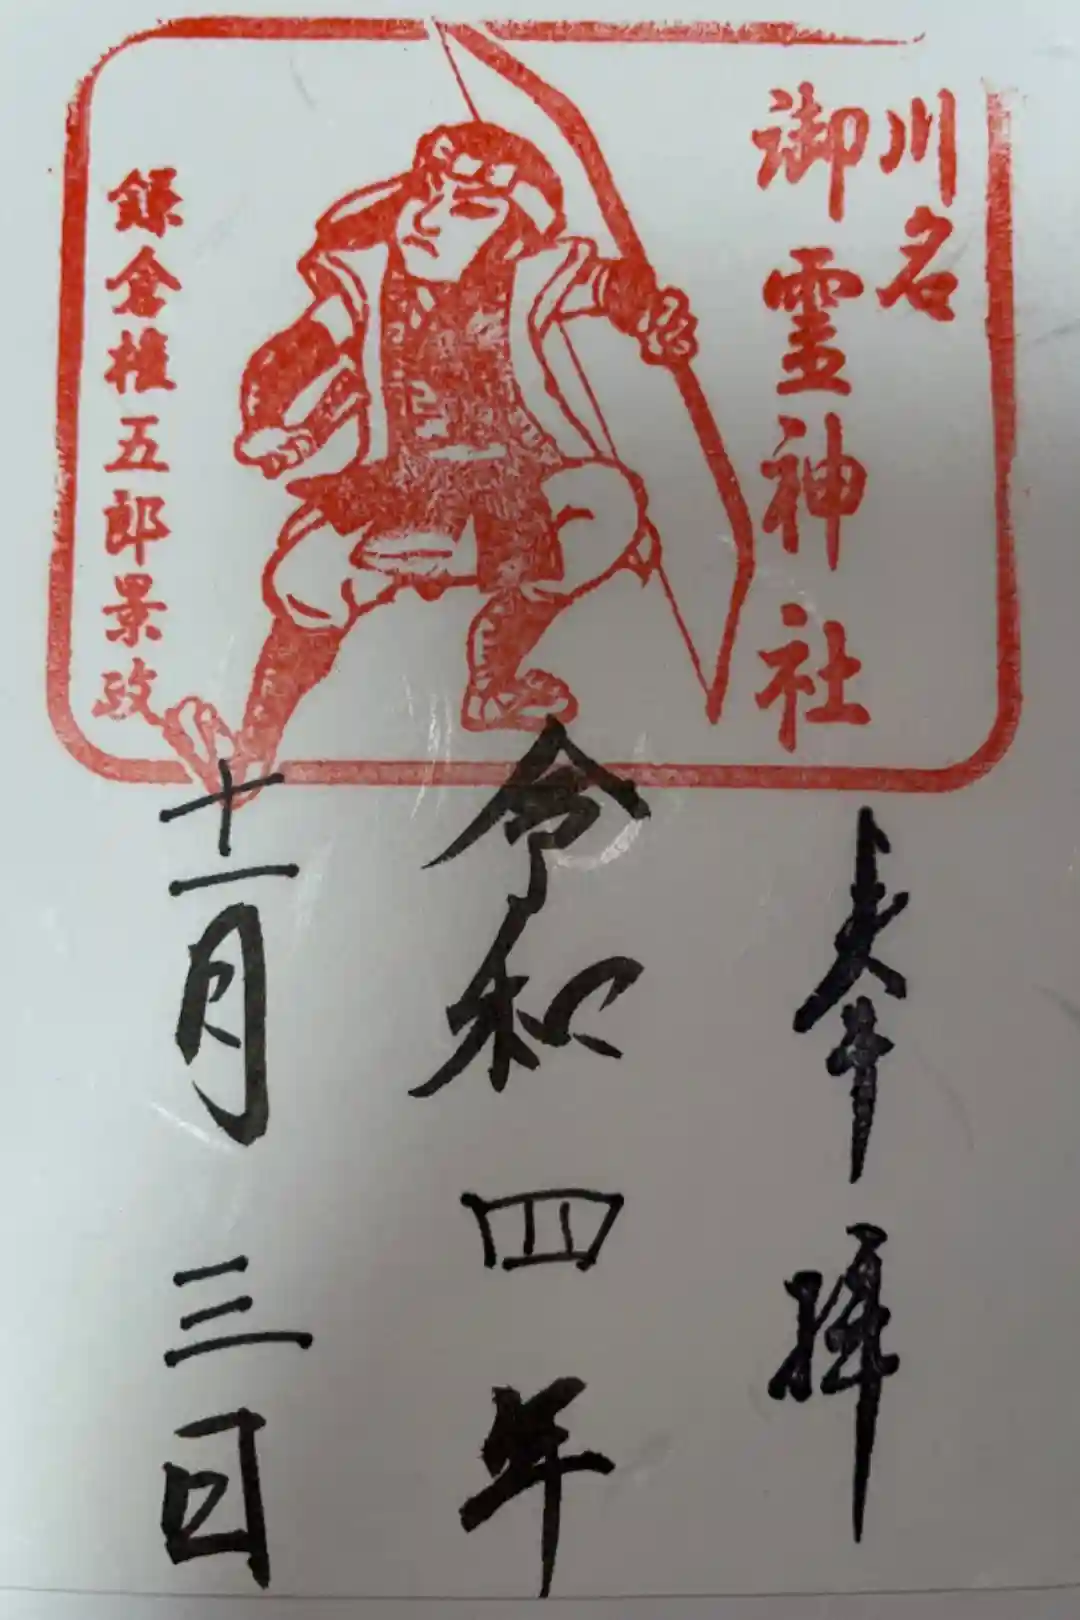 川名
御霊神社
鎌倉権五郎景政
奉拝
令和四年
十一月三日